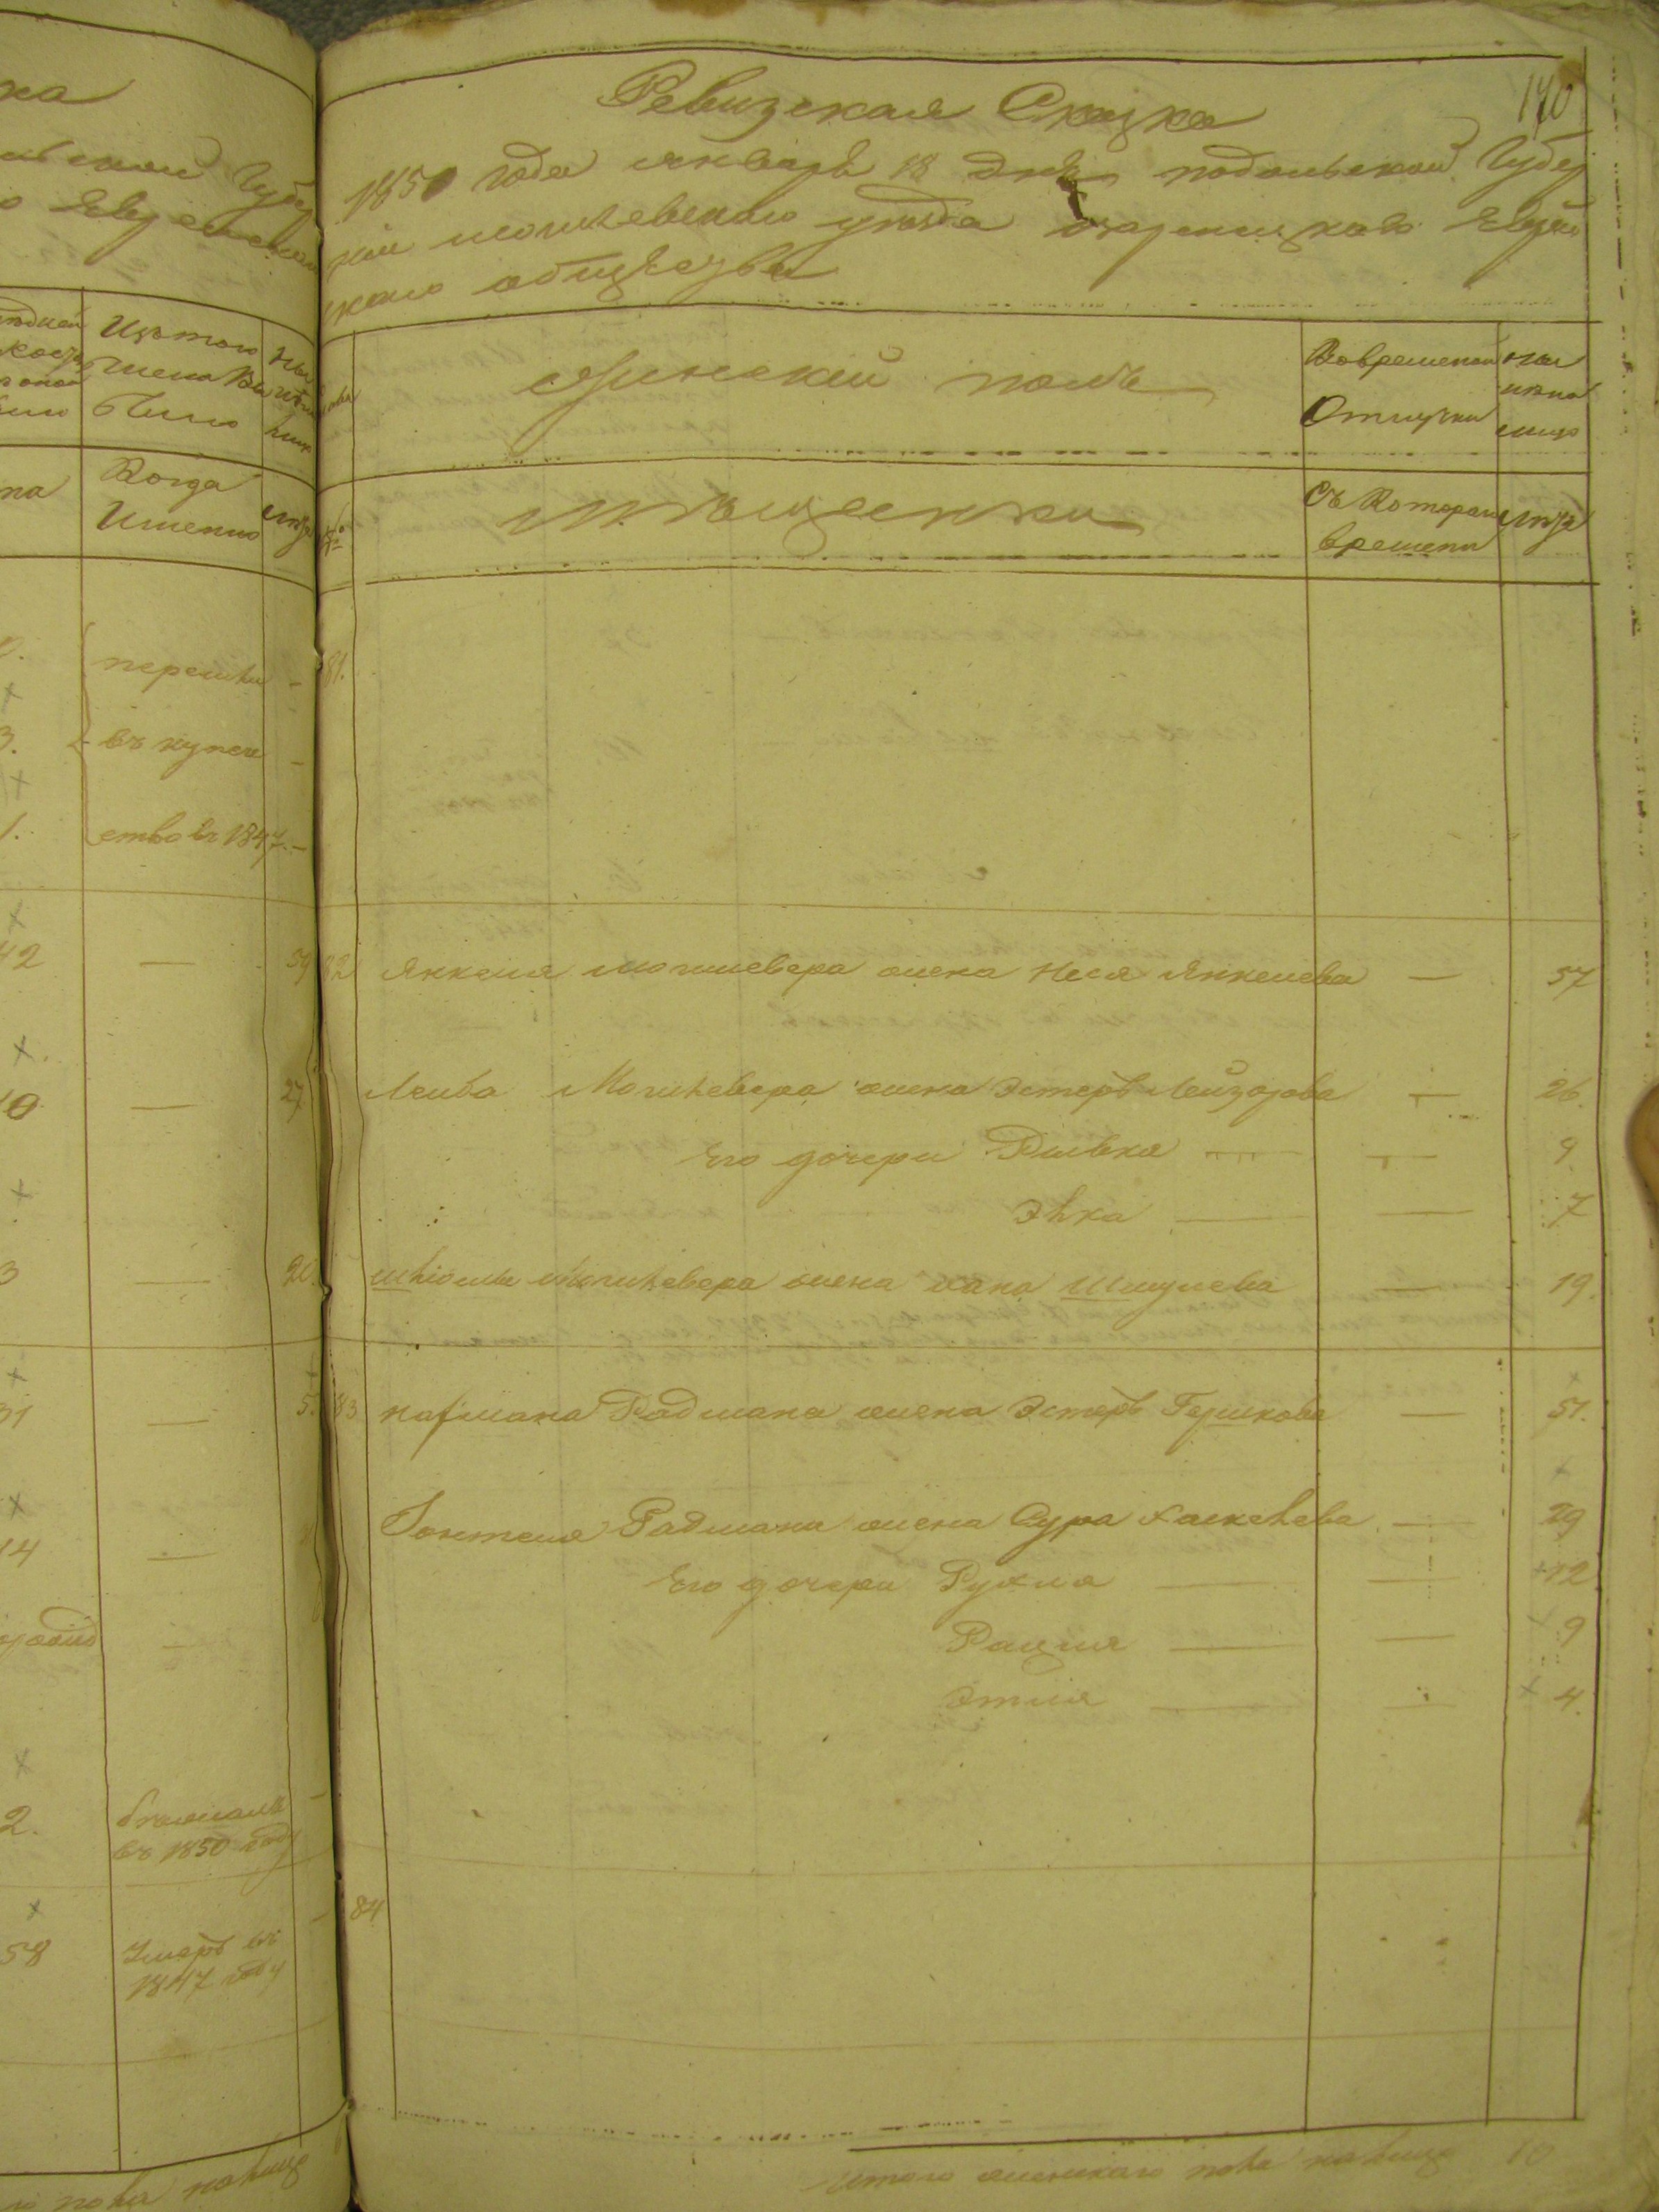 ка
Губер
Еврейскаго
Изъ того
числа вы
было
Когда
Именно
лѣта
перешли
въ купече
ство въ 1847.
42 — 59
10 — 27
3 — 20.
31 — 5.
14 —
2. въ 1850 году
58 Умеръ въ
1847 году
170
Ревизская Сказка
1850 года январь 18 дня подольской Губер
нiи могилевскаго уѣзда озаренецкаго Еврей
скаго общества
женскій полъ
Вовременной
Отлучки
ны
нѣна
лицо
№
Мѣщенки
Съ Котораго
времени
лѣта
81.
82 Янкеля могилевера жена Неся Янкелева — 57
Лейба Могилевера жена Эстеръ Лейзорова — 26.
Его дочери Рывка — — 9
Элка — — 7
Шлiомы Могилевера жена хана Шмулева — 19.
83 нафмана Радмана жена Эстеръ Гершкова — 51.
Iонтеля Радмана жена Сура Хаскелева — 29
Его дочери Рухля — — 12
Рация — — 9
Этля — — 4.
84
Итого женскаго пола на лицо 10